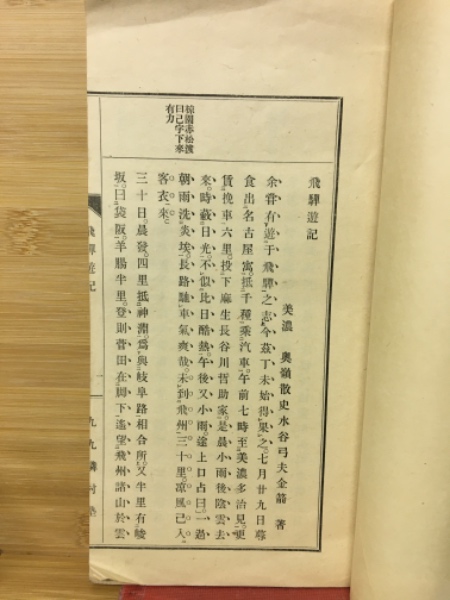 飛驒遊記
美濃 奥嶺散史水谷弓夫金箭 著
余嘗有遊于飛驒之志今茲丁未始得果之七月廿九日蓐
食出名古屋寓抵千種乘汽車午前七時至美濃多治見更
賃挽車六里投下麻生長谷川哲助家是晨小雨後陰雲去
來時戴日光不似比日酷熱午後又小雨途上口占曰一過
朝雨洗炎埃長路馳車氣爽哉未到飛州三十里凉風已入
客衣來
三十日晨發四里抵神淵爲與岐阜路相合所又半里有峻
坂曰袋阪羊腸半里登則菅田在脚下遙望飛州諸山於雲
棕園赤松渡
曰已字下來
有力
飛驒遊記
一
九九購